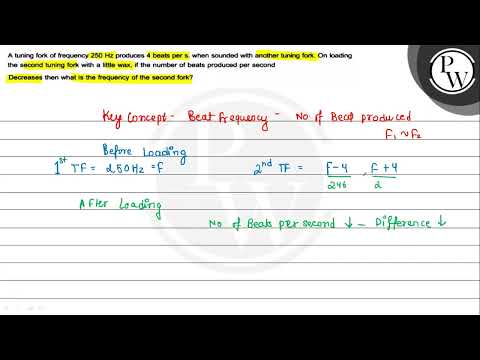 A tuning fork of frequency 250 Hz produces 4 beats per s. when sounded with another tuning fork. On loading
the second tuning fork with a little wax, if the number of beats produced per second
Decreases then what is the frequency of the second fork?
PW
Key Concept - Beat Frequency - No. of Beat produced
F1 ~ F2
Before Loading
1st TF = 250Hz = F
2nd TF = F-4 , F+4
246 2
After Loading
No of Beats per second ↓ - Difference ↓